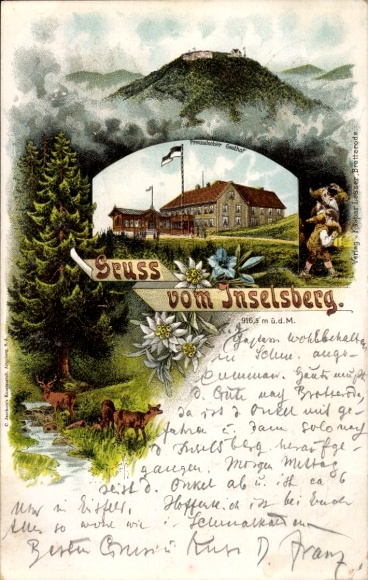 Preussischer Gasthof
Gruss
vom Inselsberg.
916,5 m ü. d. M.
Verlag: Brotterode.
Gestern wohlbehalten
in Schm. ange-
kommen. Heute mußt
d. Onkel mit ge-
fahren u. dann solo nach
d. Inselsberg heraufge-
gangen. Morgen Mittag
reist d. Onkel ab u. ist ca 6
Uhr in Hoffentlich ist bei Euch
Alles so wohl wie in Schmalkalden
Besten Gruss u Kuss D. Franz.